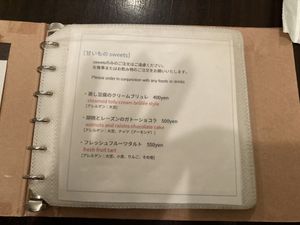 [甘いもの sweets]
sweetsのみのご注文はご遠慮ください。
お食事またはお飲み物のご注文をお願いいたします。
Please order in conjunction with any foods or drinks.
・蒸し豆腐のクリームブリュレ 400yen
steamed tofu cream brûlée style
[アレルゲン:大豆]
・胡桃とレーズンのガトーショコラ 500yen
walnuts and raisins chocolate cake
[アレルゲン:大豆、ナッツ(アーモンド)]
・フレッシュフルーツタルト 550yen
fresh fruit tart
[アレルゲン:大豆、小麦、りんご、その他]